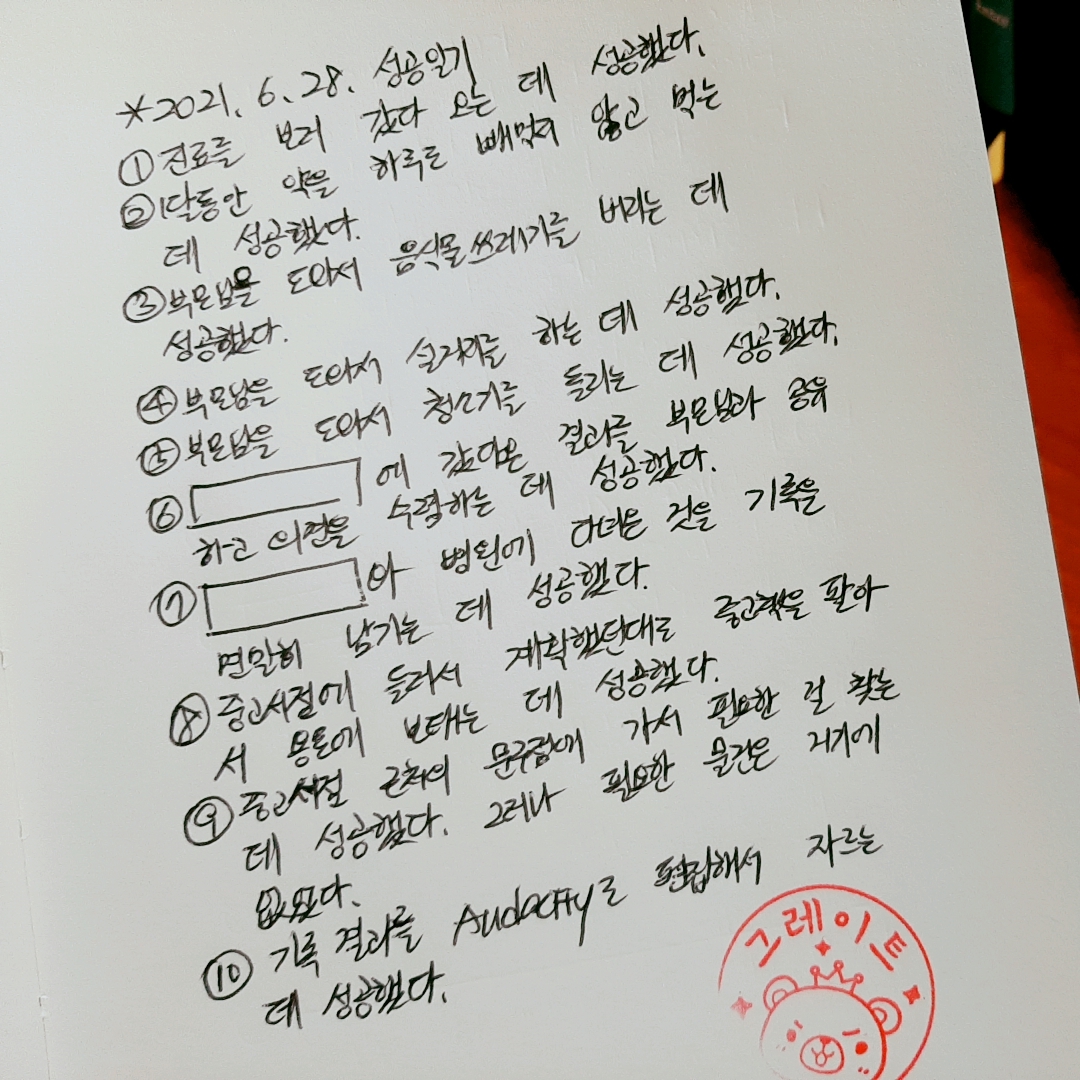 *2021. 6. 28. 성공일기
① 진료를 보러 갔다 오는 데 성공했다.
② 1달동안 약을 하루도 빼먹지 않고 먹는
데 성공했다.
③ 부모님을 도와서 음식물쓰레기를 버리는 데
성공했다.
④ 부모님을 도와서 설거지를 하는 데 성공했다.
⑤ 부모님을 도와서 청소기를 돌리는 데 성공했다.
⑥ 에 갔다온 결과를 부모님과 공유
하고 의견을 수렴하는 데 성공했다.
⑦ 와 병원에 다녀온 것을 기록을
면밀히 남기는 데 성공했다.
⑧ 중고서점에 들러서 계획했던대로 중고책을 팔아
서 용돈에 보태는 데 성공했다.
⑨ 중고서점 근처의 문구점에 가서 필요한 걸 찾는
데 성공했다. 그러나 필요한 물건은 거기에
없었다.
⑩ 기록 결과를 Audacity로 편집해서 자르는
데 성공했다.
그레이트